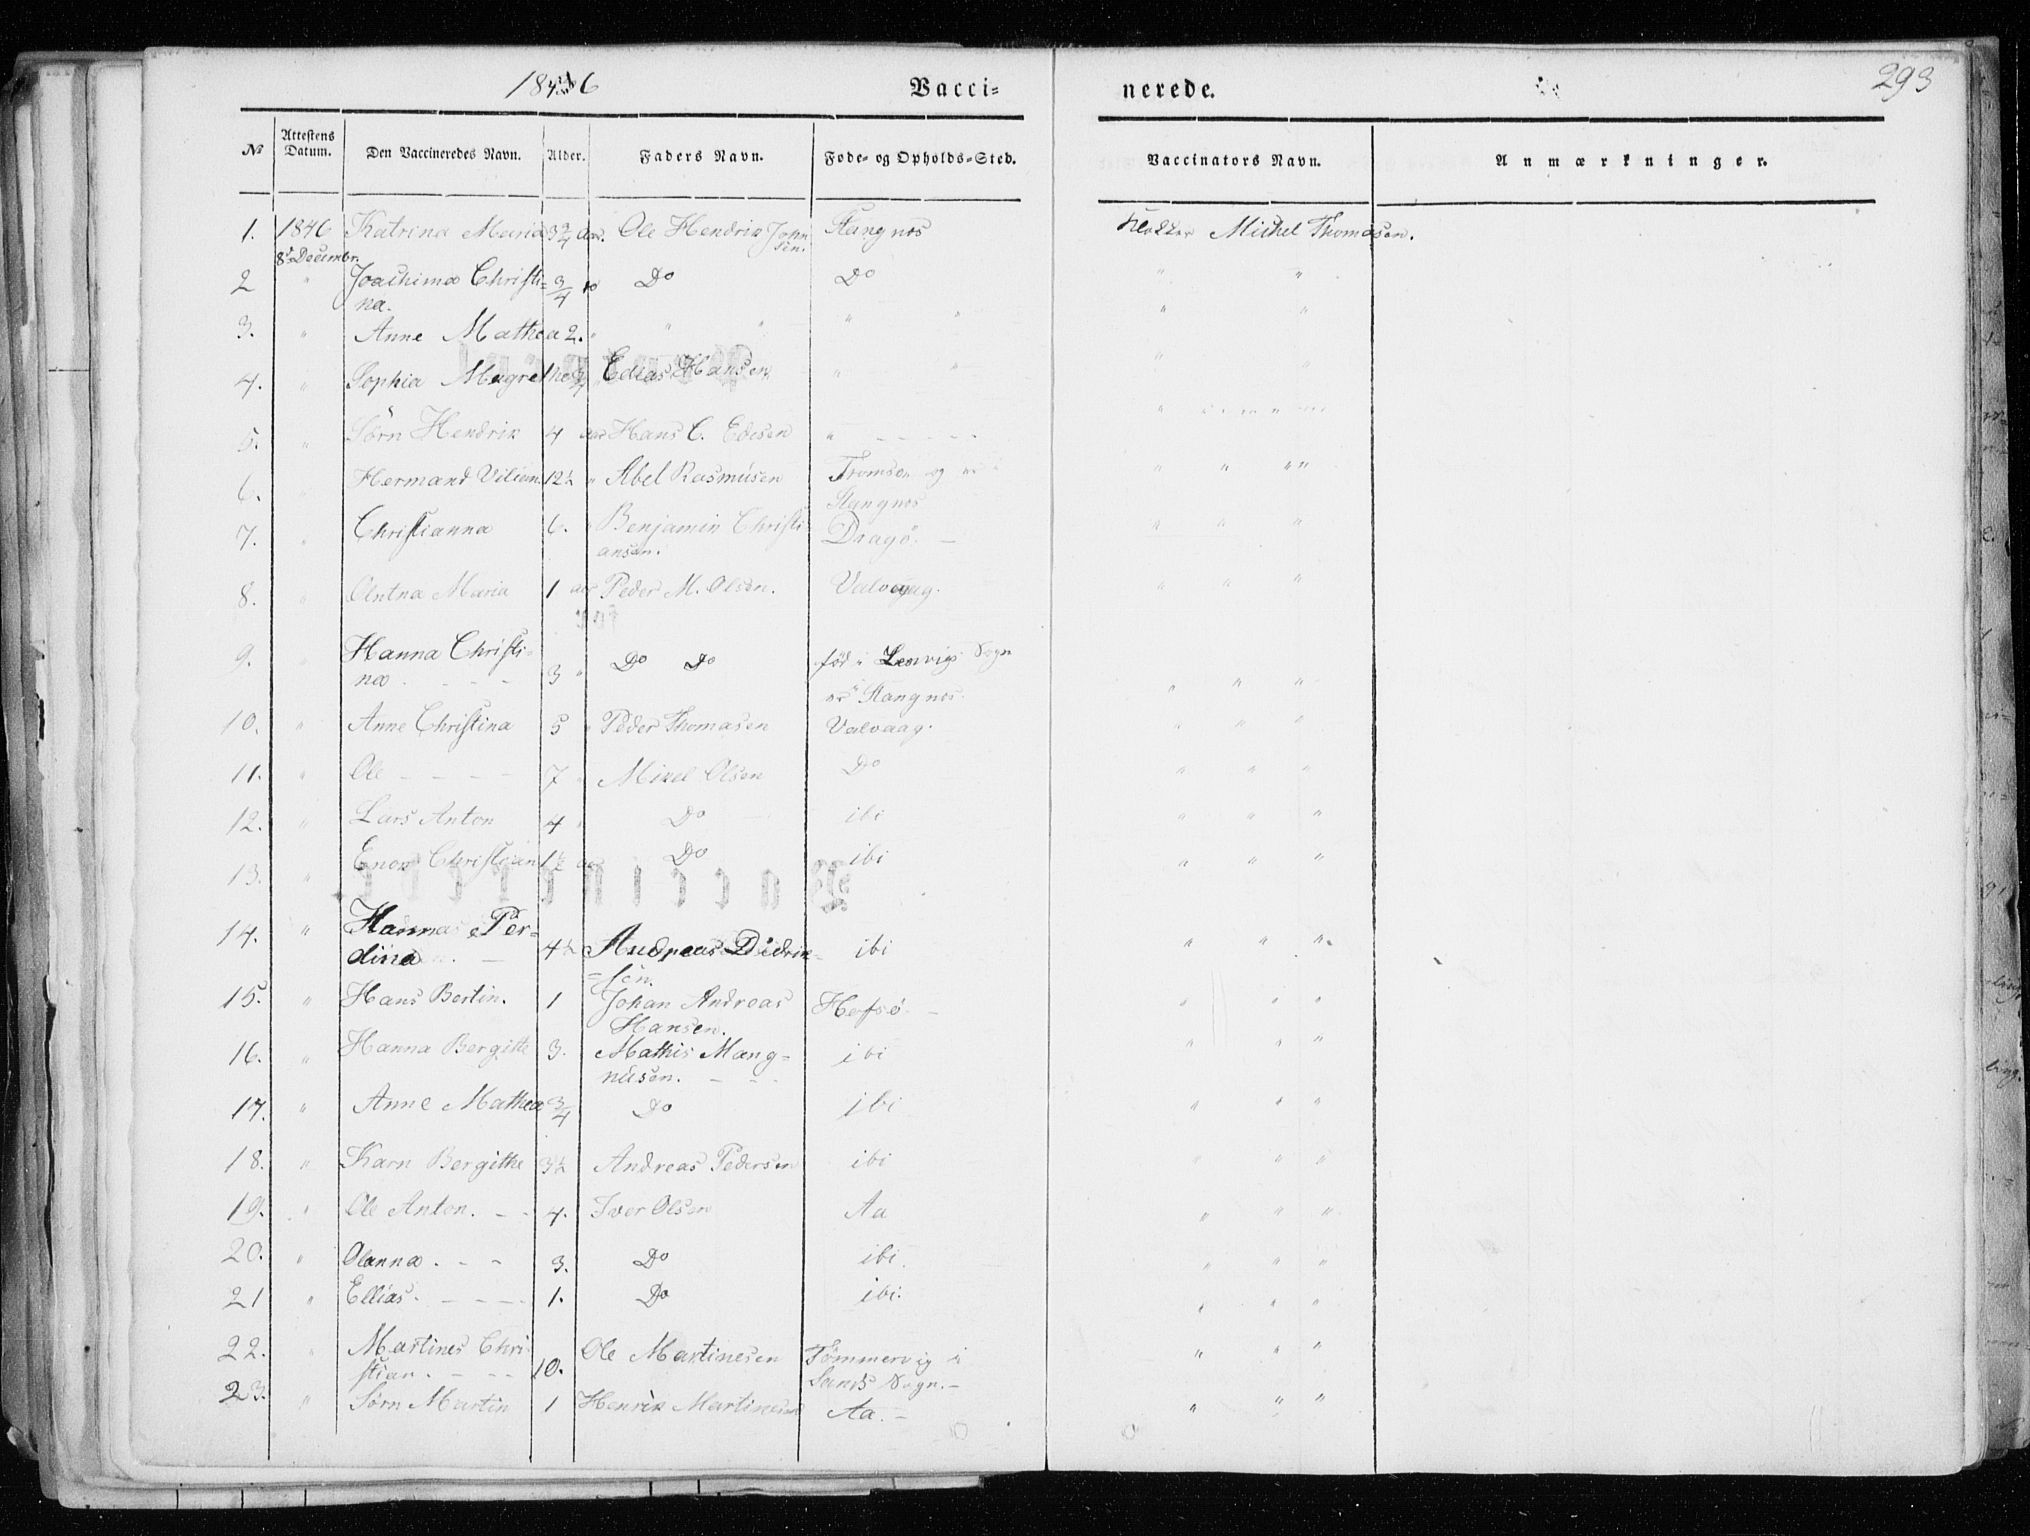 1846 Vacci= nerede. 293
No Attestens Datum. Den Vaccineredes Navn. Alder. Faders Navn. Føde- og Opholds-Sted. Vaccinators Navn. Anmærkninger.
1. 1846 Katrina Maria 3 3/4 aar. Ole Hendrik John Stangnes Klokker Michel Thomasen.
8de Decembr. sen.
2 " Joachima Christi= 3/4 Do Do " "
na.
3. " Anne Mathea 2. " " " " " " "
4. " Sophia Magrethe Edias Hansen " " "
5. " Sørn Hendrik 4 aar Hans C. Edisen " "
6. " Hermand Viliem 12½ " Abel Rasmusen Tromsø og " " "
Stangnes
7. " Christianna 6. " Benjamin Christi Dragö. " " "
ansen.
8. " Maria 1 aar Peder M. Olsen. Valvaag. " " "
9. " Hanna Christi= 3 " Do Do fød i Lenvigs Sogn
na. Stangnes. " " "
10. " Anne Christina 5 " Peder Thomasen Valvaag. " " "
11. " Ole 7 " Mikel Olsen Do " " "
12. " Lars Anton 4 " Do ibi " " "
13. " Enok Christian 1½ aar Do ibi " " "
14. " Hanna Per= 4½ Andreas Didrik= ibi " " "
dina =sen.
15. " Hans Bertin. 1 Johan Andreas Hofsö. " " "
Hansen.
16. " Hanna Bergitte 3. Mathis Mang= ibi " " "
nusen.
17. " Anne Mathea 3/4 Do ibi " " "
18. " Karn Bergithe 3½ Andreas Pedersen ibi " " "
19. " Ole Anton. 4. Iver Olsen Aa " " "
20. " Olanna. 3. Do ibi. " " "
21 " Ellias. 1. Do ibi. " " "
22. " Martines Chri 10. Ole Martinesen Tömmervig i " " "
stian. Sands Sogn.
23. " Sørn Martin 1 Henrik Martinesen Aa. " " "